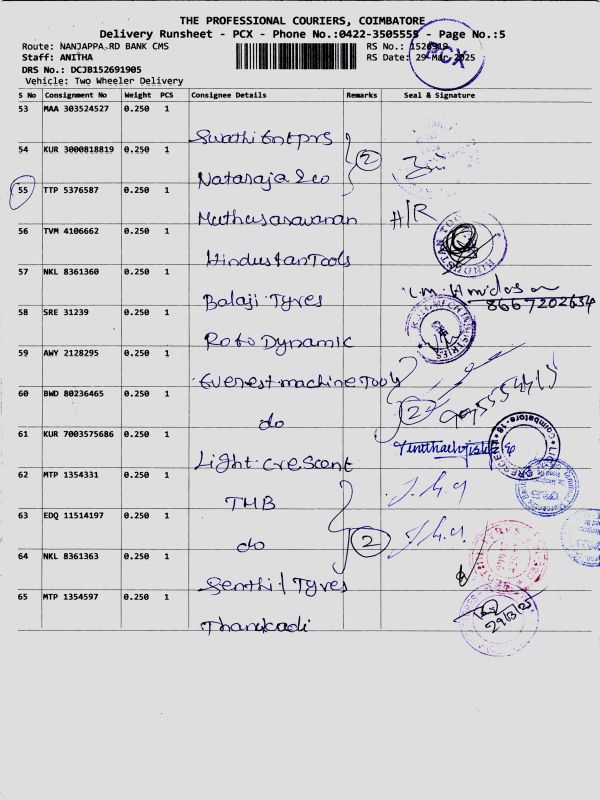 THE PROFESSIONAL COURIERS, COIMBATORE
Delivery Runsheet - PCX - Phone No.:0422-3505555 - Page No.:5
Route: NANJAPPA RD BANK CMS
RS No.:
Staff: ANITHA
RS Date: 29-Mar-2025
PCX
DRS No.: DCJB152691905
Vehicle: Two Wheeler Delivery
S No Consignment No Weight PCS Consignee Details Remarks Seal & Signature
53 MAA 303524527 0.250 1
Swathi Entprs
54 KUR 3000818819 0.250 1
2
Nataraja & co
55 TTP 5376587 0.250 1
Muthusaravanan H/R
56 TVM 4106662 0.250 1
Hindustan Tools
HINDUSTAN TOO
57 NKL 8361360 0.250 1
Balaji Tyres
8667202634
58 SRE 31239 0.250 1
Roto Dynamic
59 AWY 2128295 0.250 1
Everest machine Tools
60 BWD 80236465 0.250 1
2
do
61 KUR 7003575686 0.250 1
Light crescent
Coimbatore-18
62 MTP 1354331 0.250 1
TMB
63 EDQ 11514197 0.250 1
2
do
64 NKL 8361363 0.250 1
Senthil Tyres
65 MTP 1354597 0.250 1
29/3/25
Thanikadi